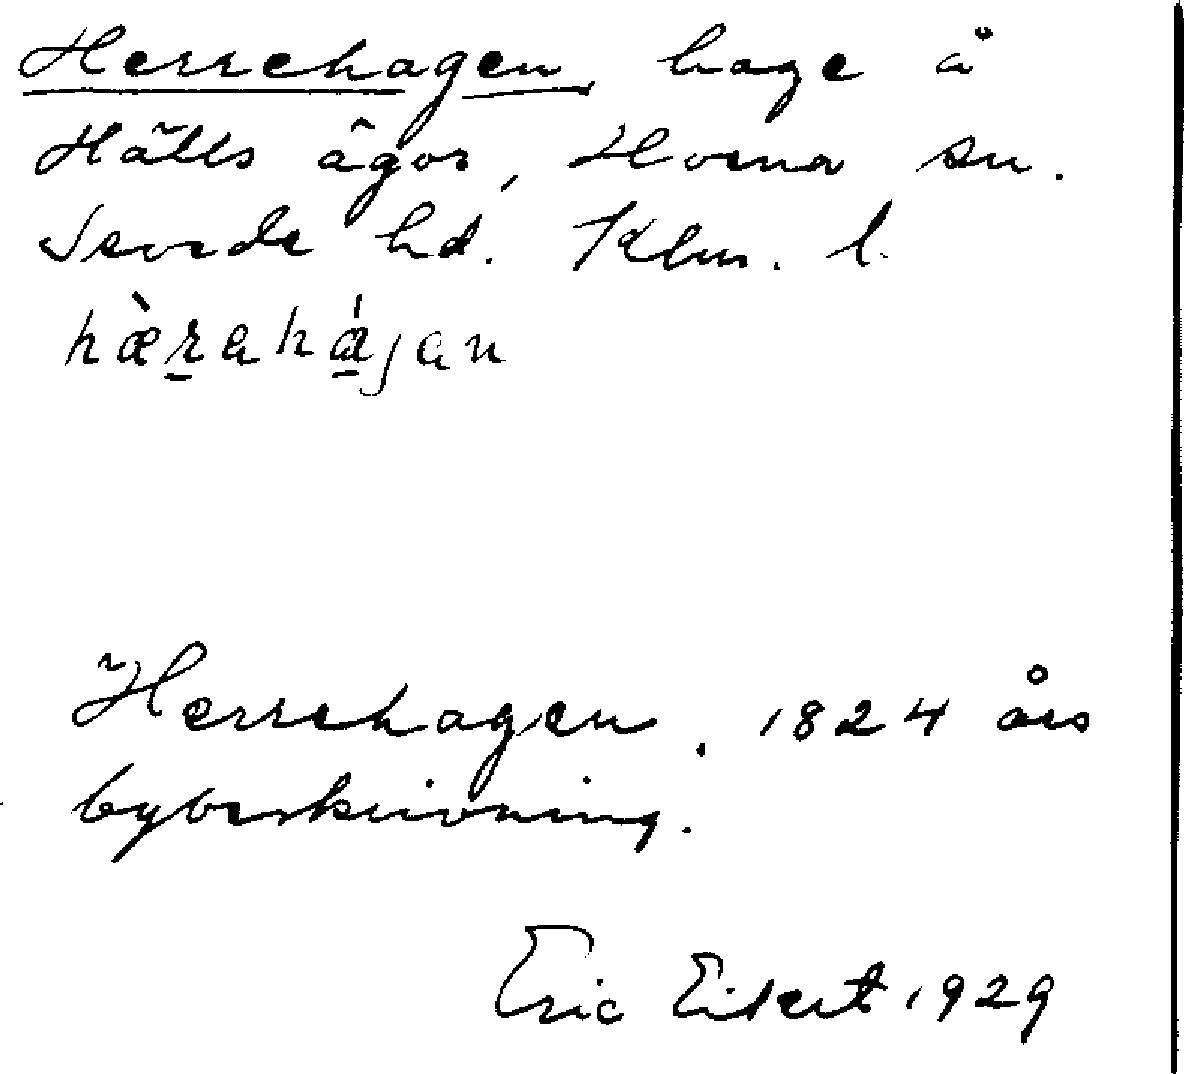 Herrehagen, hage å
Hälls ägor, Hvena sn.
Sevede hd. Klm. l.
hæ̀r̲ahá̲jan
Herrehagen. 1824 års
bybeskrivning.
Eric 1929